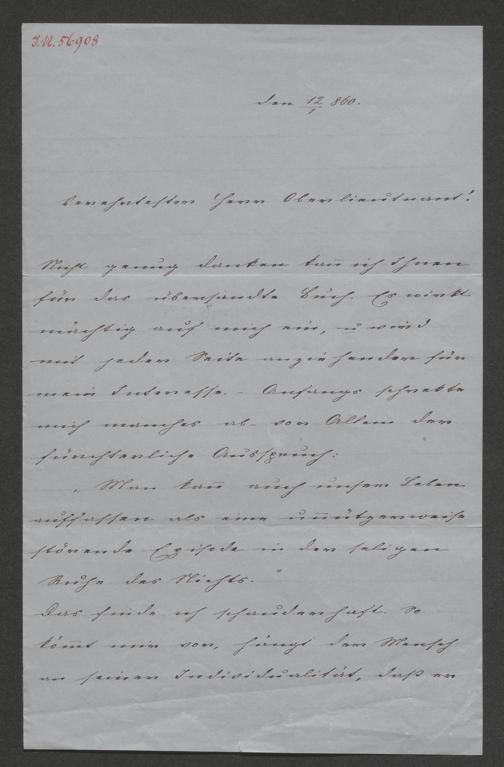 I.N. 56908
den 12/1 860.
Verehrtester Herr Oberlieutnant!
Nicht genug danken kan̄ ich Ihnen
für das übersandte Buch. Es wirkt
mächtig auf mich ein, u wird
mit jeder Seite anziehender für
mein Interesse. – Anfangs schrekte
mich manches ab – vor Allem der
fürchterliche Ausspruch:
„Man kan̄ auch unser Leben
auffassen als eine un̄ützerweise
störende Episode in der seligen
Ruhe des Nichts."
Das finde ich schauderhaft. So
köm̄t mir vor, hängt der Mensch
an seiner Individualität, daß er